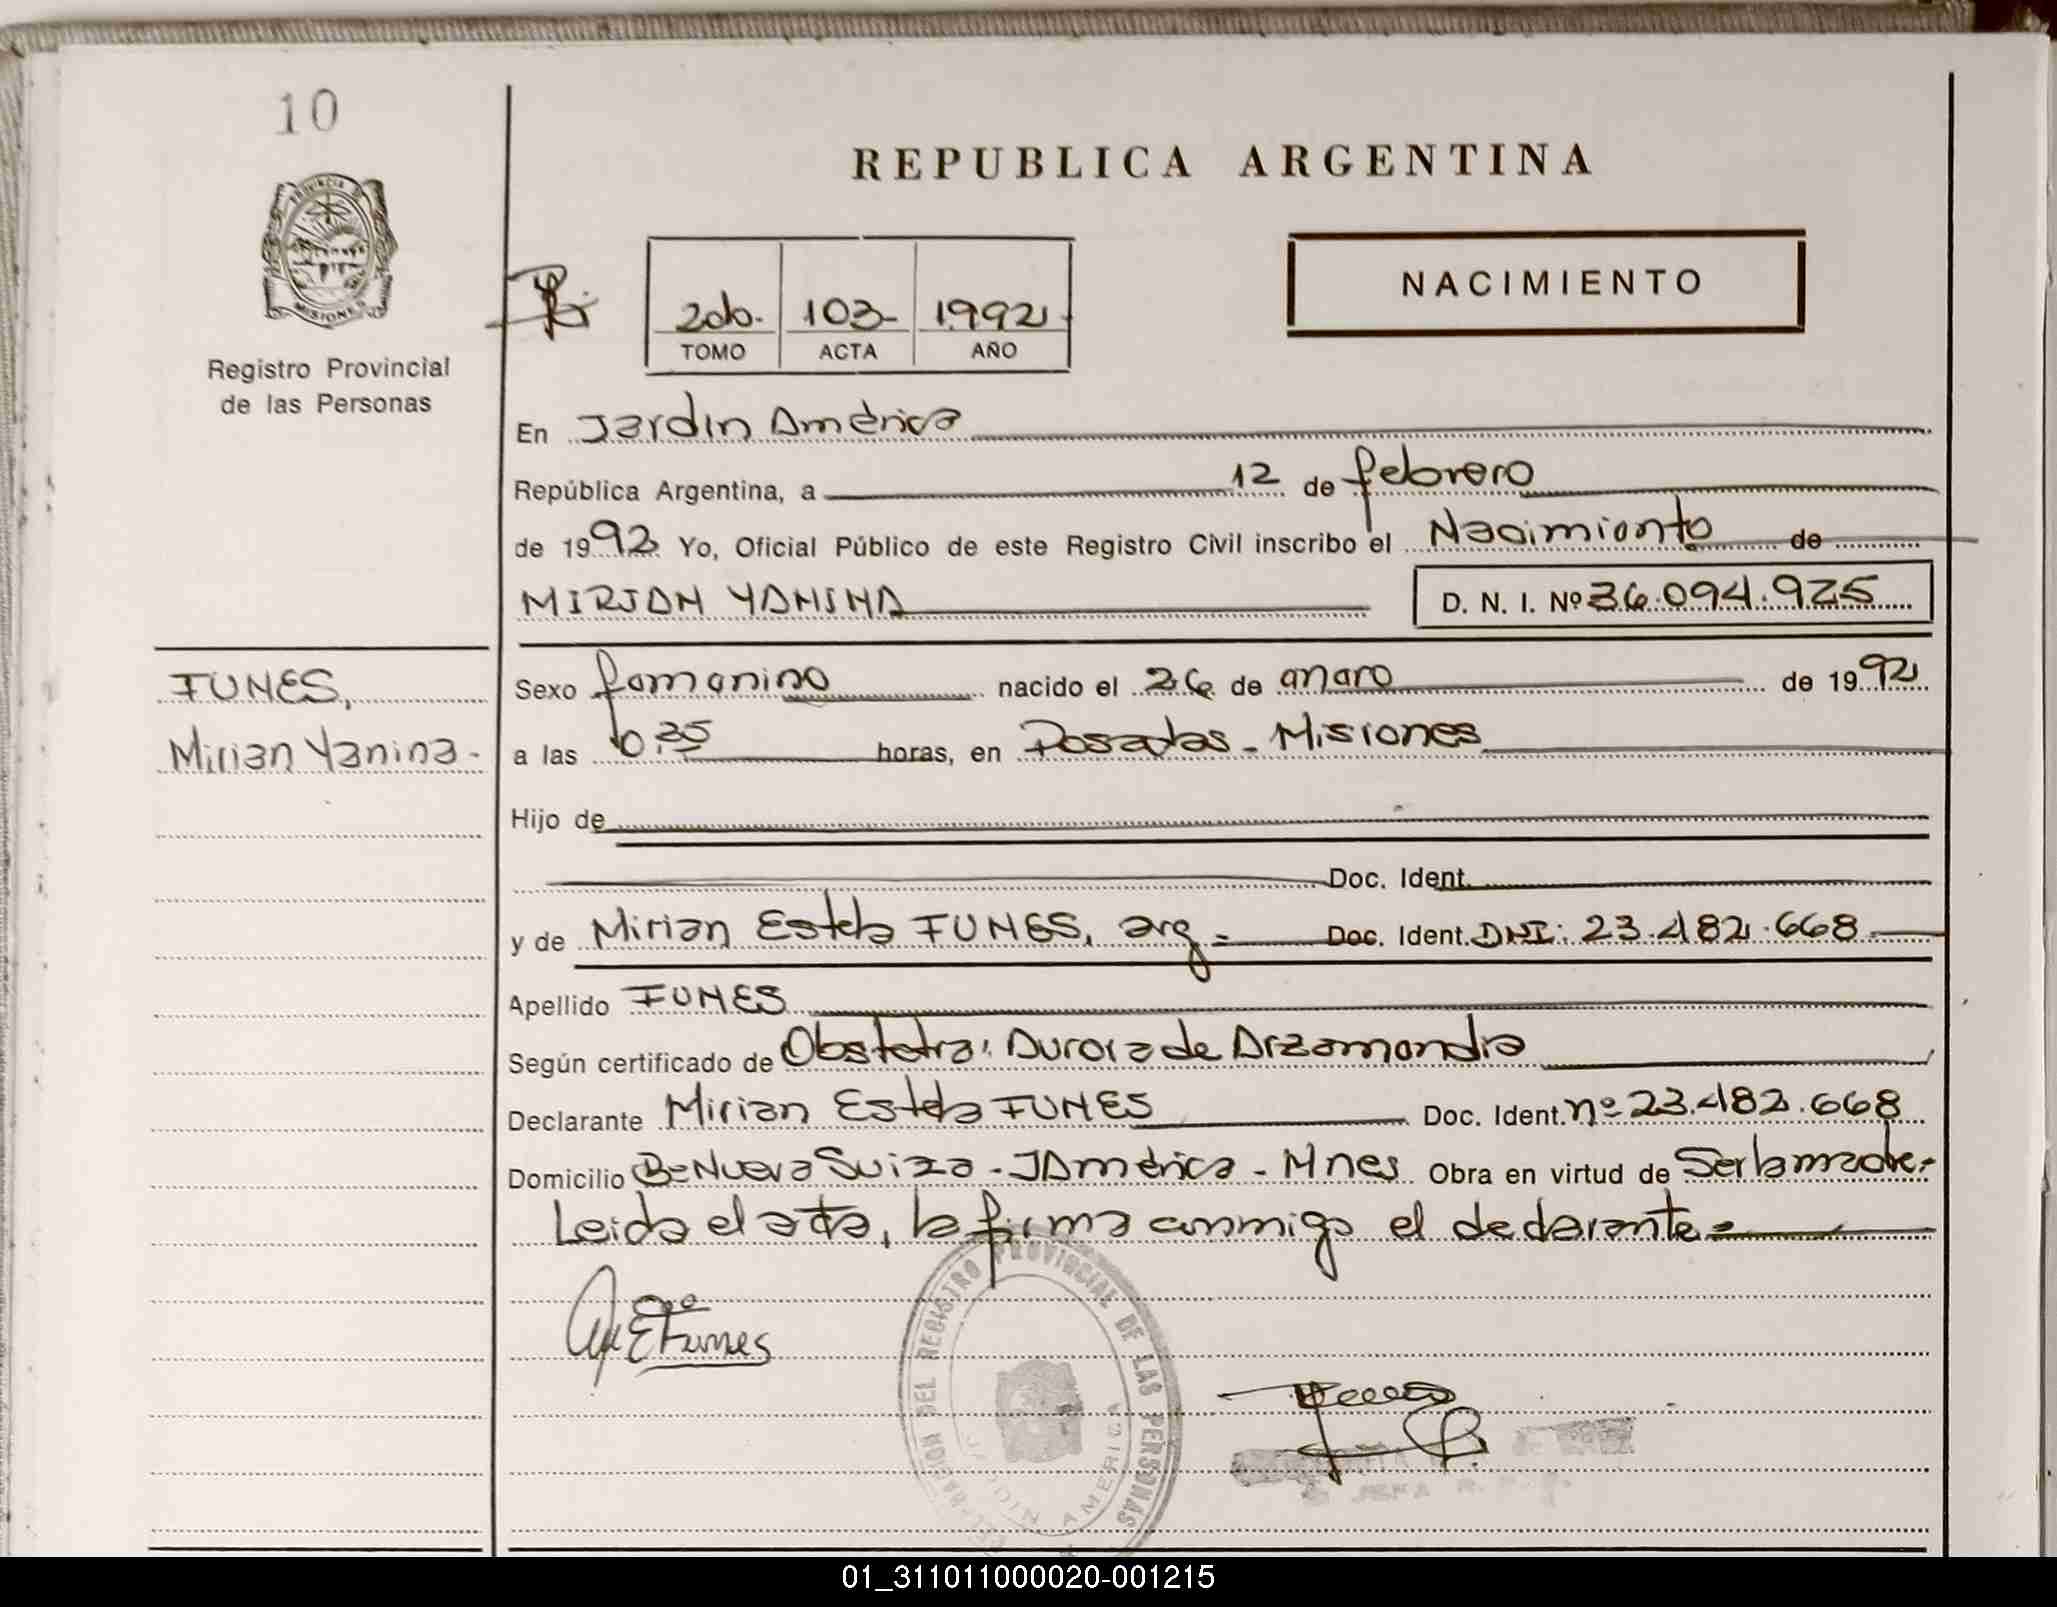 10
REPUBLICA ARGENTINA
PROVINCIA D
MISIONES
Registro Provincial
de las Personas
2do. 103- 1992
TOMO ACTA AÑO
NACIMIENTO
En Jardin América
República Argentina, a 12 de febrero
de 1992 Yo, Oficial Público de este Registro Civil inscribo el Nacimiento de
MIRIAN YANINA D. N. I. Nº 36.094.925
FUNES,
Mirian Yanina-
Sexo femenino nacido el 26 de enero de 1992
a las 10:35 horas, en Posadas - Misiones
Hijo de
Doc. Ident.
y de Mirian Estela FUNES, arg = Doc. Ident. DNI: 23.482.668
Apellido FUNES
Según certificado de Obstetra: Aurora de Arzamendia
Declarante Mirian Estela FUNES Doc. Ident. nº 23.482.668
Domicilio Bº Nueva Suiza - JAmérica - Mnes Obra en virtud de Ser la madre.-
Leida el acta, la firma conmigo el declarante=
Funes
DEL REGISTRO PROVINCIAL DE LAS PERSONAS
JARDIN AMERICA
01_311011000020-001215